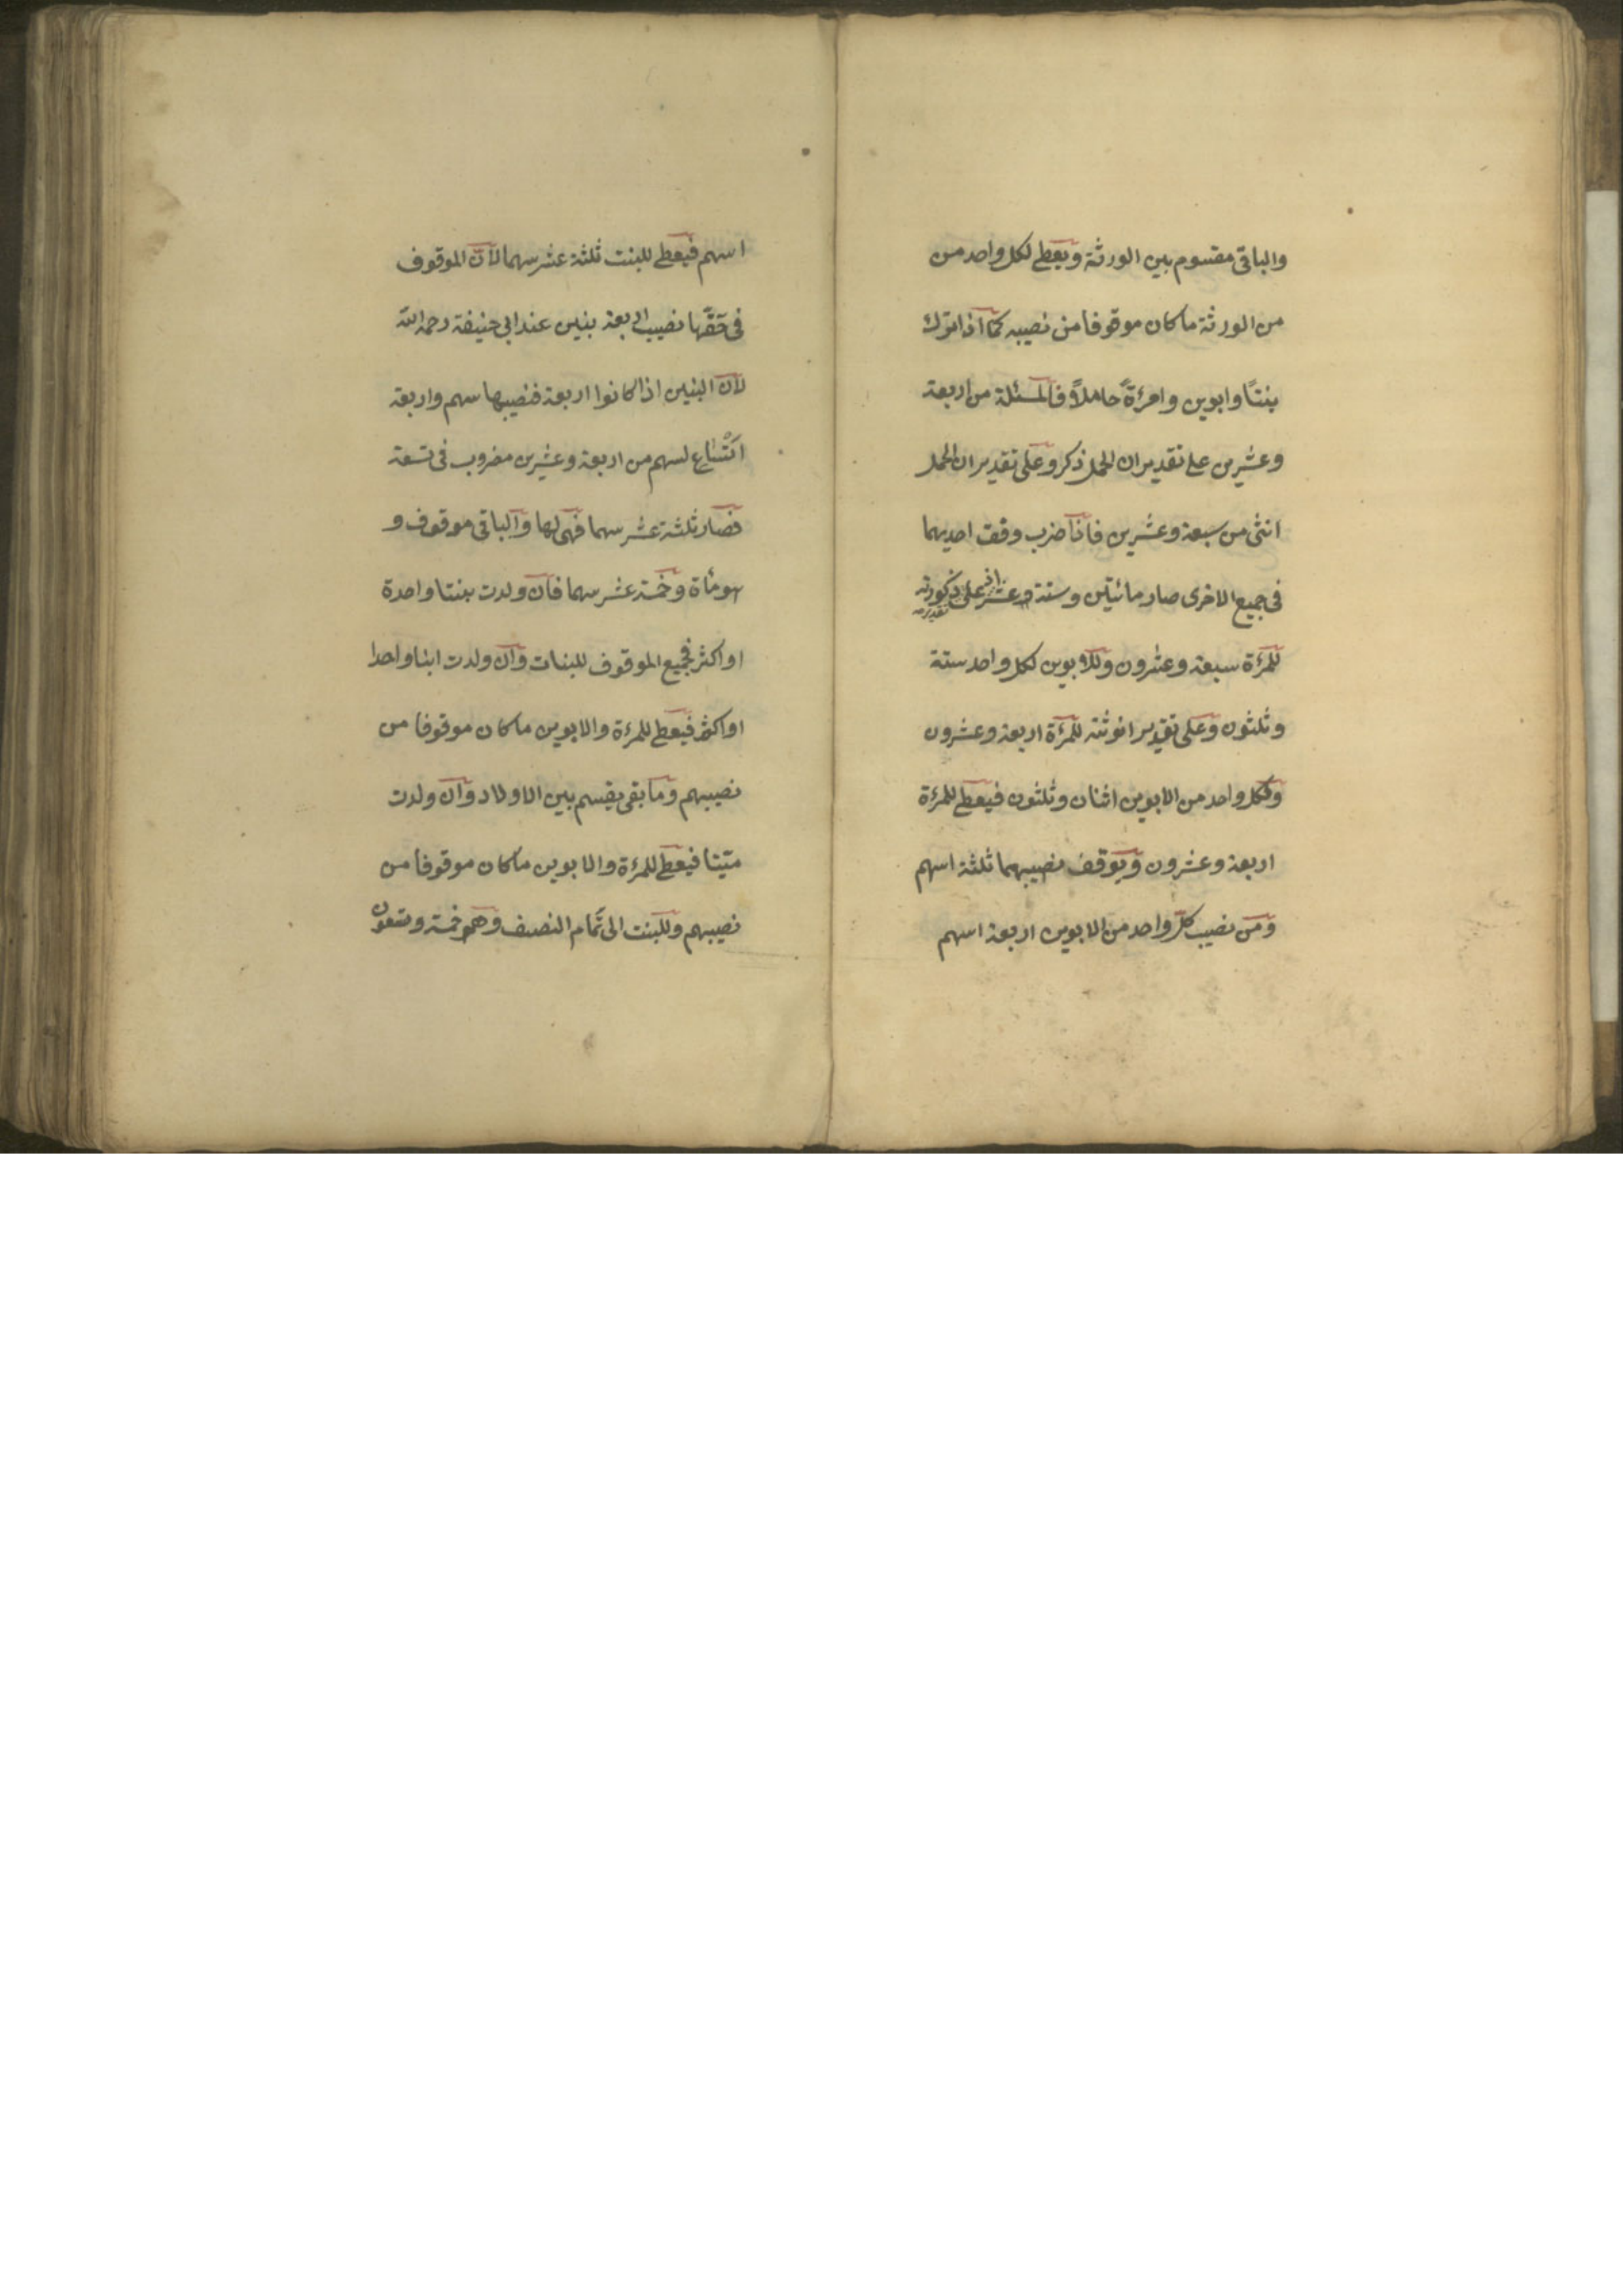 والباقى مقسوم بين الورثة ويعطى لكل واحد من
من الورثة ما كان موقوفا من نصيبه كما اذا ترك
بنتًا وابوين وامرءةً حاملًا فالمسئلة من اربعة
وعشرين على تقدير ان الحمل ذكر وعلى تقدير ان الحمل
انثى من سبعة وعشرين فاذا ضرب وفق احديهما
فى جميع الاخرى صار مائتين وستة وعشر على ذكورته
للمرءة سبعة وعشرون وللابوين لكل واحد ستة
وثلثون وعلى تقدير انوثته للمرءة اربعة وعشرون
ولكل واحد من الابوين اثنان وثلثون فيعطى للمرءة
اربعة وعشرون ويوقف نصيبهما ثلثة اسهم
ومن نصيب كل واحد من الابوين اربعة اسهم
اسهم فيعطى للبنت ثلثة عشر سهما لان الموقوف
فى حقها نصيب اربعة بنين عند ابى حنيفة رحمه الله
لان البنين اذا كانوا اربعة فنصيبها سهم واربعة
اتساع لسهم من اربعة وعشرين مضروب فى تسعة
فصار ثلثة عشر سهما فهى لها والباقى موقوف و
هو مأة وخمسة عشر سهما فان ولدت بنتا واحدة
او اكثر فجميع الموقوف للبنات وان ولدت ابنا واحدا
او اكثر فيعطى للمرءة والابوين ما كان موقوفا من
نصيبهم وما بقى يقسم بين الاولاد وان ولدت
ميتا فيعطى للمرءة والابوين ما كان موقوفا من
نصيبهم وللبنت الى تمام النصف وهو خمسة وتسعون